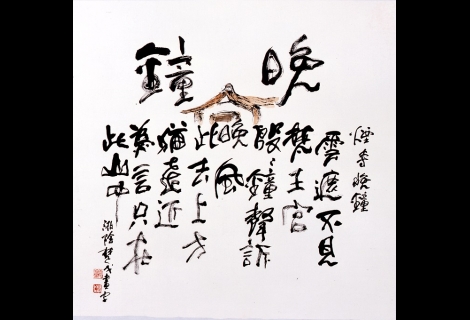 晚鐘
煙寺晚鐘
雲遮不見
梵王宮
殷〻鐘聲訴
晚風
此去上方
猶遠近
為言只在
此山中
湘陰楚戈畫字